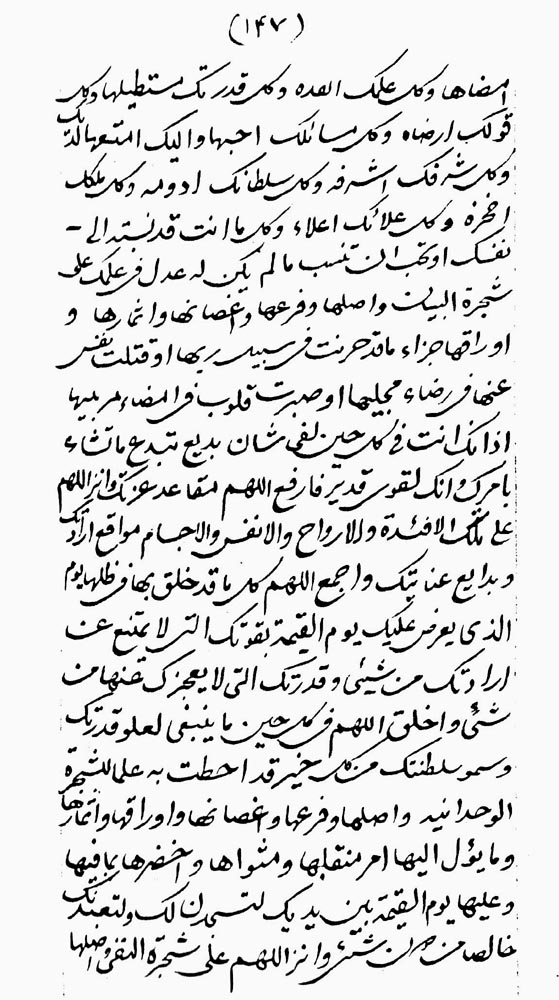 (١۴٧)
امضاها وكل علمك انفده وكل قدرتك مستطيلها وكل
قولك ارضاه وكل مسائلك احبها واليك امتعها لديك
وكل شرفك اشرفه وكل سلطانك ادومه وكل ملكك
افخره وكل علائك اعلاء وكل ما انت قد نسبته الى -
نفسك او تحب ان تنسب ما لم يكن له عدل فى علمك على
شجرة البيان واصلها وفرعها واغصانها واثمارها و
اوراقها جزاء ما قد حزنت فى سبيل ربها او قتلت نفس
عنها فى رضاء مجليها او صبرت قلوب فى امضاء مربيها
اذ انك انت فى كل حين لفى شان بديع تبدع ما تشاء
بامرك وانك لقوى قدير فارفع اللهم مقاعد عزتك وانزل اللهم
على تلك الافئدة والارواح والانفس والاجسام مواقع ارادتك
وبدايع عنايتك واجمع اللهم كل ما قد خلق بها فى ظلها يوم
الذى يعرض عليك يوم القيمة بقوتك التى لا يمتنع عن
ارادتك من شيئ وقدرتك التى لا يعجزك عنها من
شئ واخلق اللهم فى كل حين ما ينبغى لعلو قدرتك
وسمو سلطنتك من كل خير قد احطت به علما للشجرة
الوحدانيه واصلها وفرعها واغصانها واوراقها واثمارها
وما يؤل اليها امر منقلبها ومثواها واحضرها بما فيها
وعليها يوم القيمة بين يديك لتسجدن لك ولتعبدنك
خالصا من دون شئ وانزل اللهم على شجرة النفى واصلها